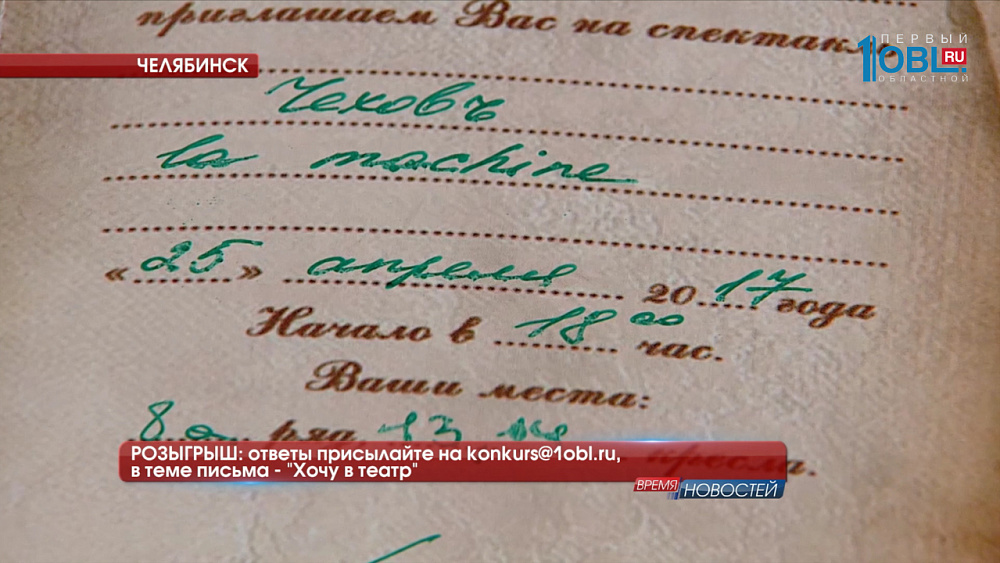 приглашаем Вас на спектакль
ПЕРВЫЙ
1OBL.RU
ОБЛАСТНОЙ
ЧЕЛЯБИНСК
Чеховъ
la machine
«25» апреля 2017 года
Начало в 18 00 час.
Ваши места:
8 ряд 13 14 кресла.
РОЗЫГРЫШ: ответы присылайте на konkurs@1obl.ru,
в теме письма - "Хочу в театр"
ВРЕМЯ НОВОСТЕЙ